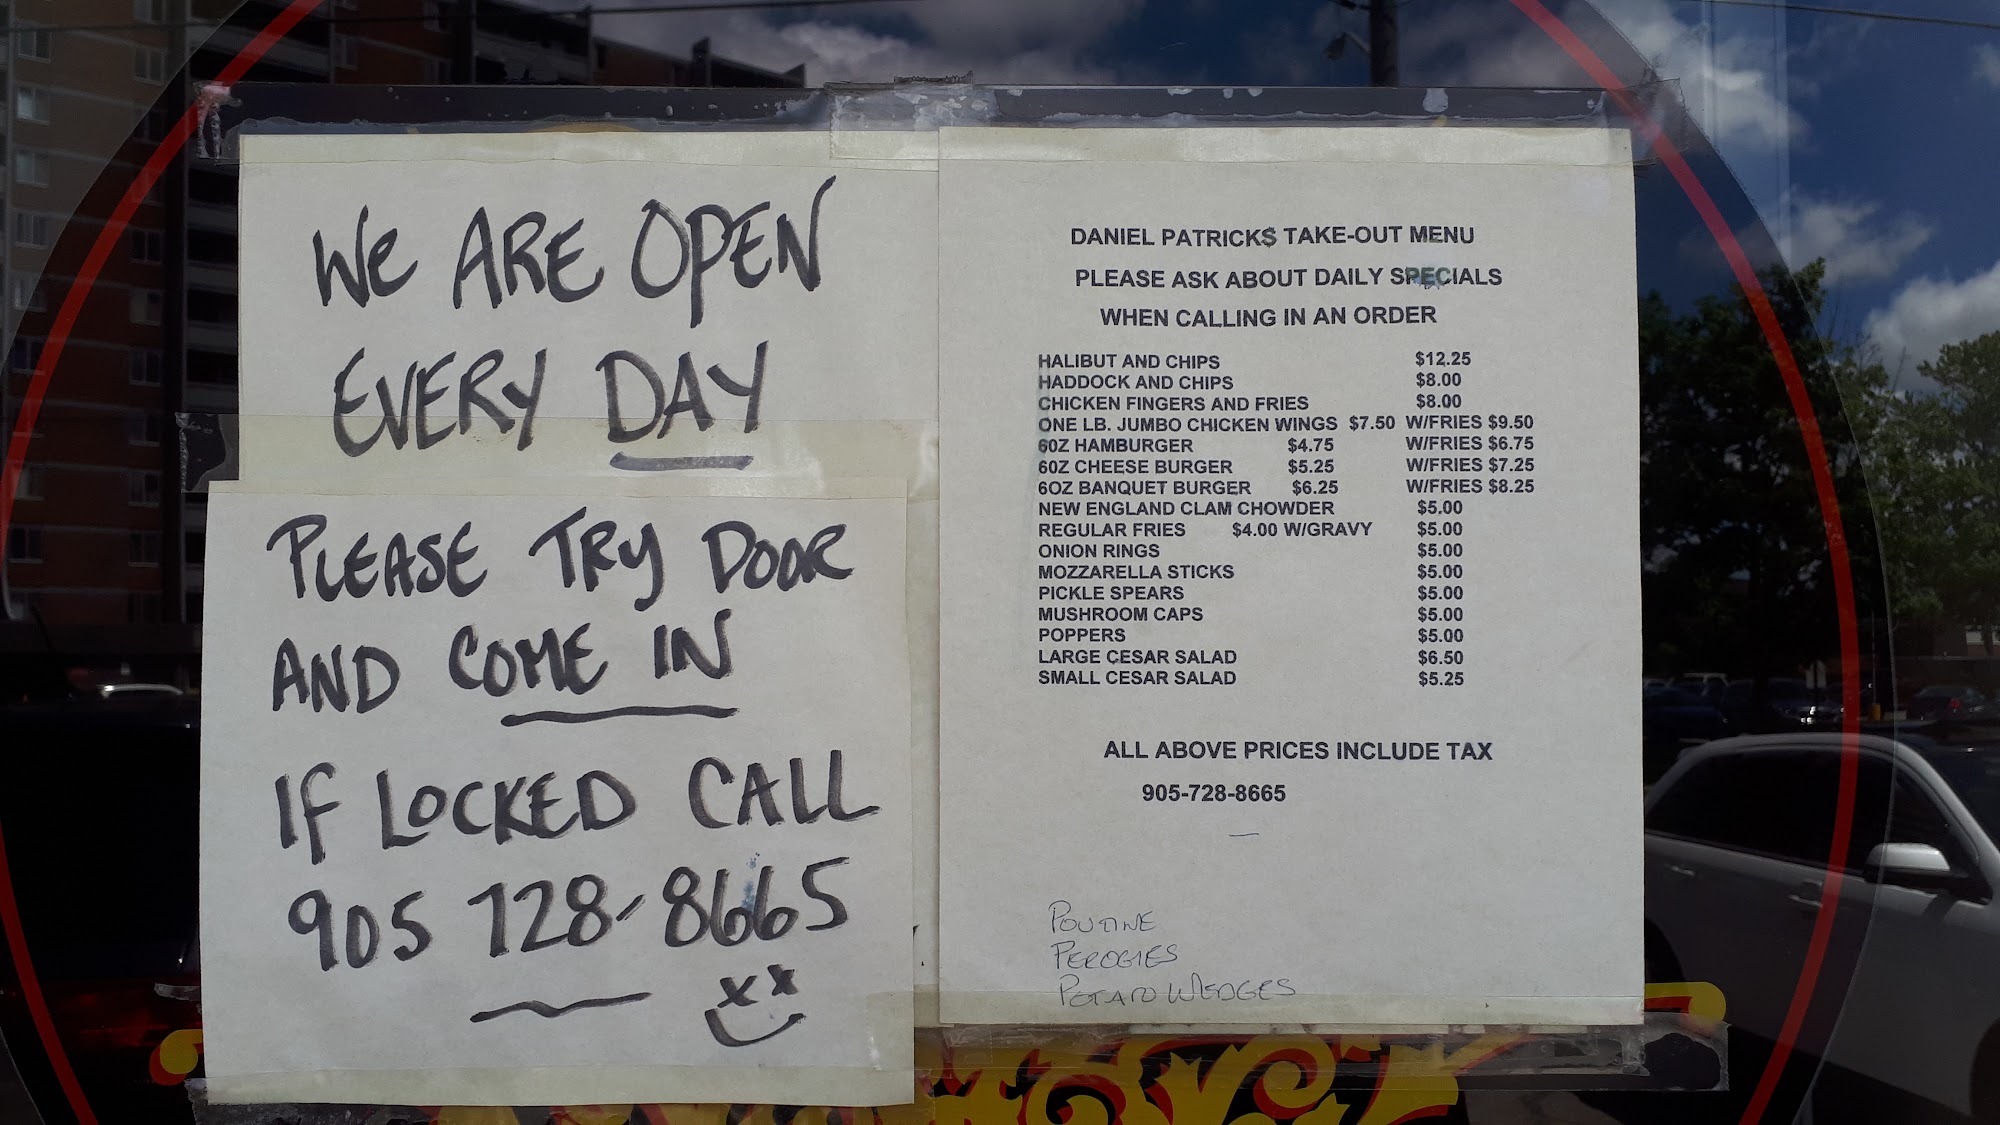 WE ARE OPEN
EVERY DAY
PLEASE TRY DOOR
AND COME IN
IF LOCKED CALL
905 728-8665
DANIEL PATRICK$ TAKE-OUT MENU
PLEASE ASK ABOUT DAILY SPECIALS
WHEN CALLING IN AN ORDER
HALIBUT AND CHIPS $12.25
HADDOCK AND CHIPS $8.00
CHICKEN FINGERS AND FRIES $8.00
ONE LB. JUMBO CHICKEN WINGS $7.50 W/FRIES $9.50
6OZ HAMBURGER $4.75 W/FRIES $6.75
6OZ CHEESE BURGER $5.25 W/FRIES $7.25
6OZ BANQUET BURGER $6.25 W/FRIES $8.25
NEW ENGLAND CLAM CHOWDER $5.00
REGULAR FRIES $4.00 W/GRAVY $5.00
ONION RINGS $5.00
MOZZARELLA STICKS $5.00
PICKLE SPEARS $5.00
MUSHROOM CAPS $5.00
POPPERS $5.00
LARGE CESAR SALAD $6.50
SMALL CESAR SALAD $5.25
ALL ABOVE PRICES INCLUDE TAX
905-728-8665
POUTINE
PEROGIES
POTATO WEDGES